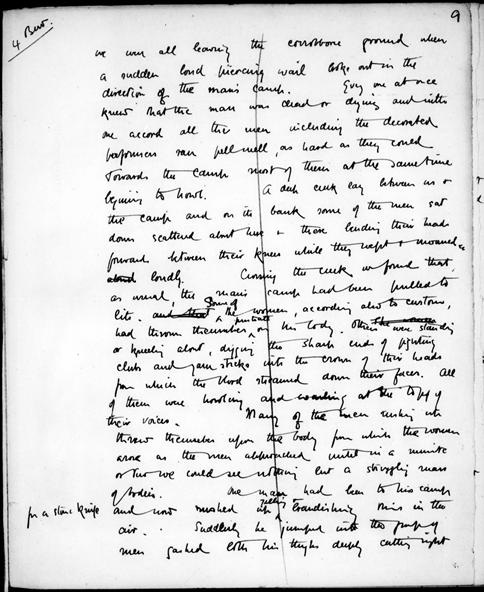 4 Bero.
9
we were all leaving the corrobboree ground when
a sudden loud piercing wail broke out in the
direction of the mans camp. Every one at once
knew that the man was dead or dying and with
one accord all the men including the decorated
performers ran pellmell, as hard as they could
towards the camp most of them at the same time
begining to howl. A deep creek lay between us &
the camp and on its bank some of the men sat
down scattered about here & there bending their heads
forward between their knees while they wept & moaned
aloud loudly. Crossing the creek we found that,
as usual, the mans camp had been pulled to
bits. and that Some of the women, according also to custom,
had thrown themselves prostrate on his body. Others were standing
or kneeling about, digging the sharp ends of fighting
clubs and yam sticks into the crown of their heads
from which the blood streamed down their faces. All
of them were howling and wailing at the top of
their voices. Many of the men rushing up
threw themselves upon the body from which the women
arose as the men approached until in a minute
or two we could see nothing but a struggling mass
of bodies. One man had been to his camp
for a stone knife and now rushed up yelling & brandishing this in the
air. Suddenly he jumped into the group of
men gashed both his thighs deeply cutting right